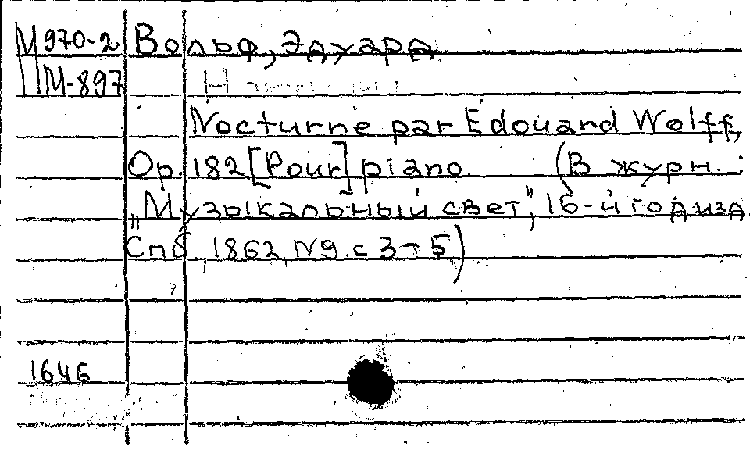 М970-2 Вольф, Эдуард
ПМ-897
Nocturne par Edouard Wolff,
Op. 182 [Pour] piano. (В журн.
"Музыкальный свет", 16-й год изд.
Спб, 1862, №9. с 3-5)
1646